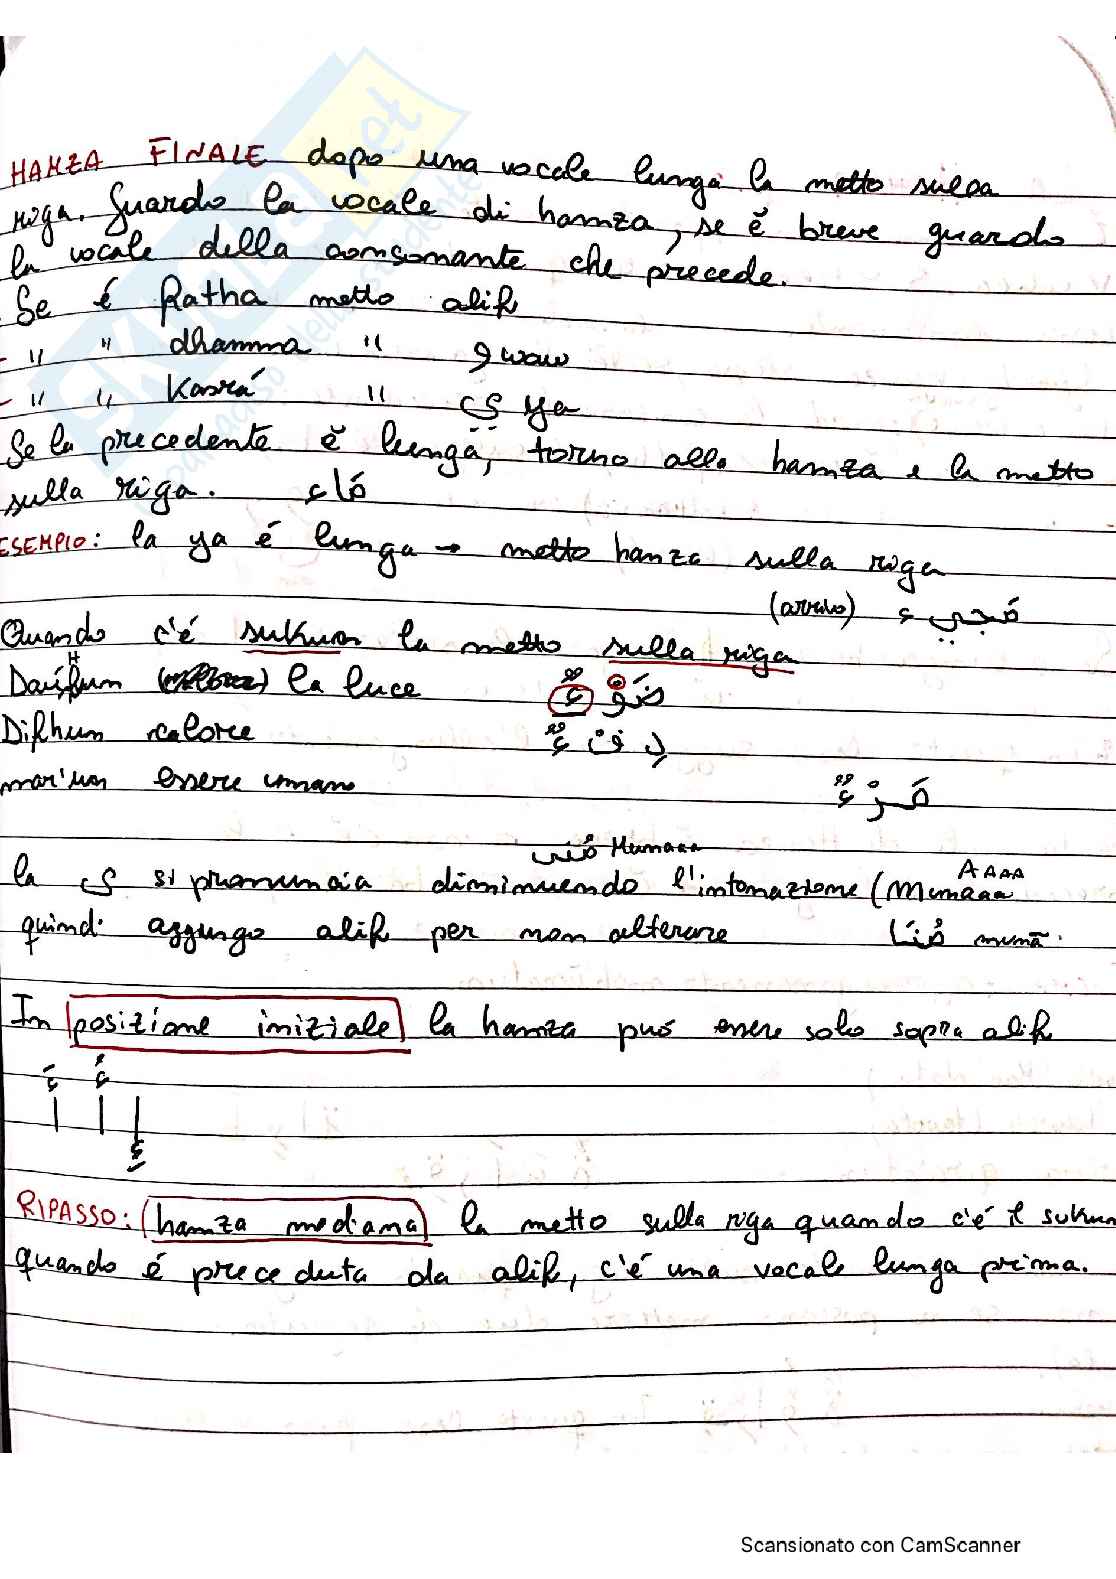 HAMZA FINALE dopo una vocale lunga la metto sulla
riga. Guardo la vocale di hamza, se è breve guardo
la vocale della consonante che precede.
Se é Fatha metto alif
- " " dhamma " و waw
- " " Kasrá " ي ya
Se la precedente è lunga, torno alla hamza e la metto
sulla riga. مَاء
ESEMPIO: la ya é lunga → metto hanza sulla riga
(arrivo) مَجيء
Quando c'é sukun la metto sulla riga
la luce ضَوْءٌ
Difhun calore دِفْءٌ
mar'un essere umano مَرْءٌ
مُنى Munaaa
la ى si pronuncia diminuendo l'intonazione (Munaaa AAAA
quindi aggungo alif per non alterare مُنَا munā.
In posizione iniziale la hamza puó essere solo sopra alif
أَ أُ إِ
RIPASSO: (hamza mediana) la metto sulla riga quando c'é il sukun
quando é preceduta da alif, c'é una vocale lunga prima.
Scansionato con CamScanner